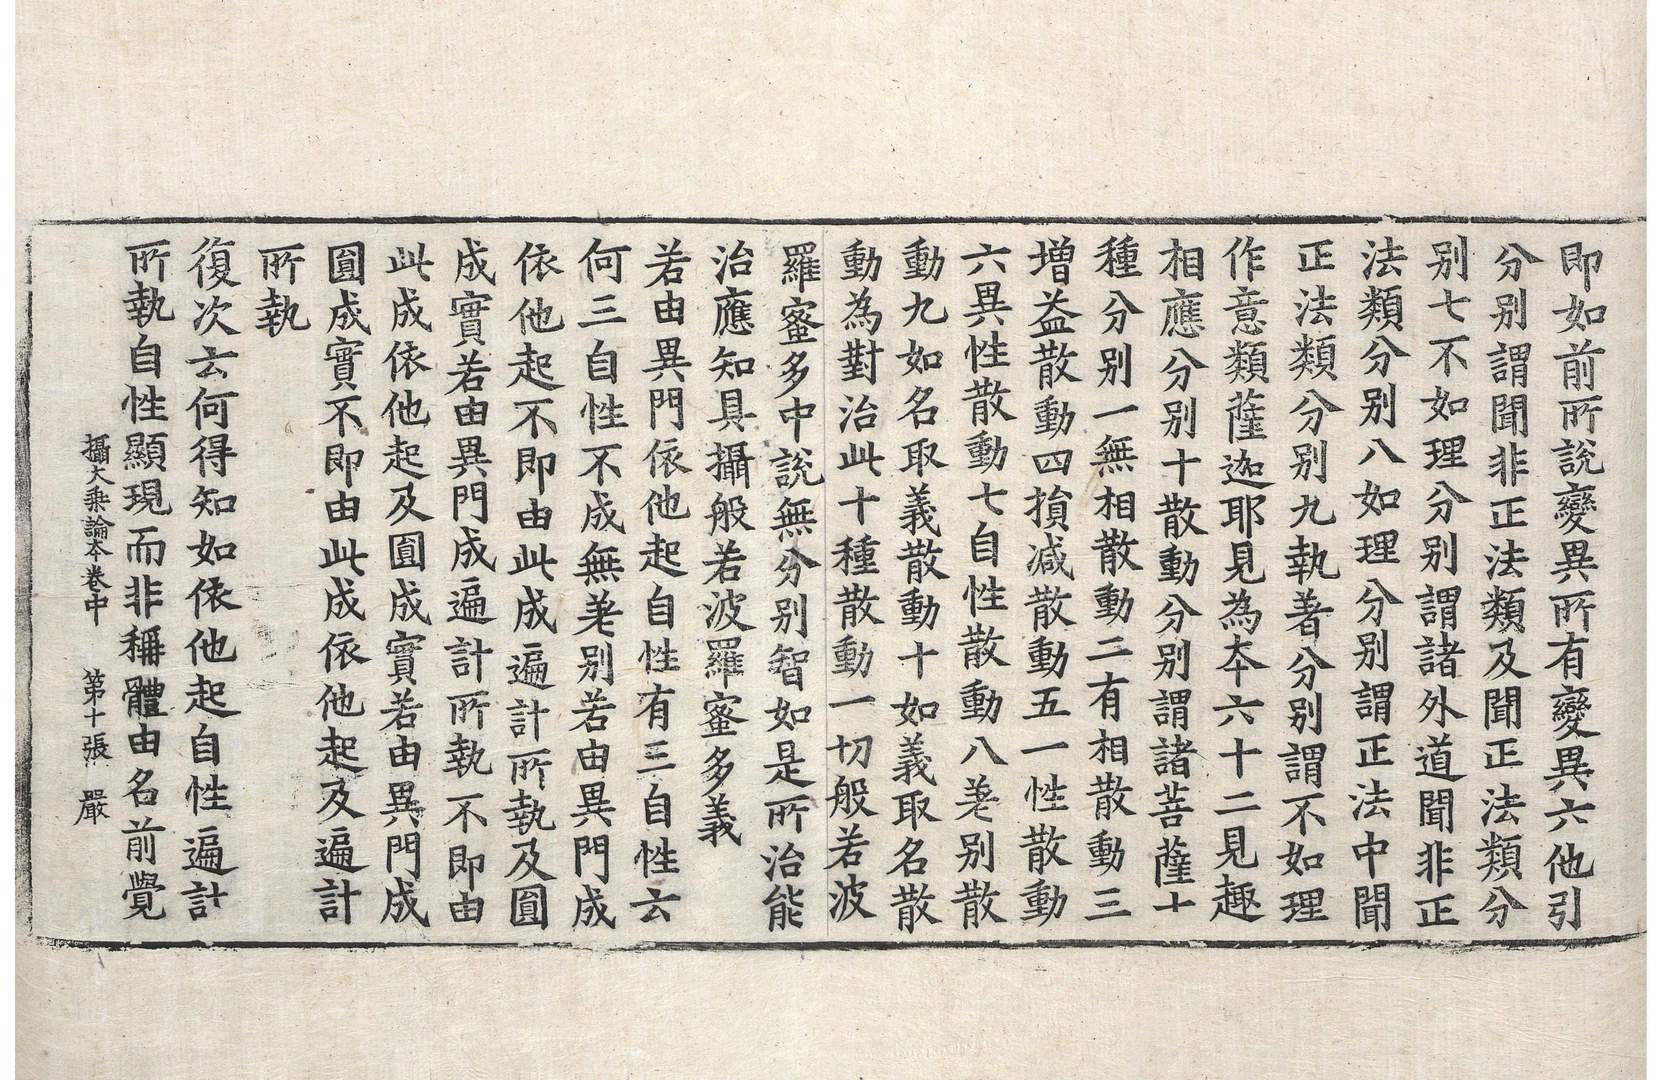 即如前所說變異所有變異六他引
分别謂聞非正法類及聞正法類分
别七不如理分别謂諸外道聞非正
法類分别八如理分别謂正法中聞
正法類分别九執著分别謂不如理
作意類薩迦耶見為夲六十二見趣
相應分别十散動分别謂諸菩薩十
種分别一無相散動二有相散動三
增益散動四損减散動五一性散動
六異性散動七自性散動八差别散
動九如名取義散動十如義取名散
動為對治此十種散動一切般若波
羅蜜多中說無分别智如是所治能
治應知具攝般若波羅蜜多義
若由異門依他起自性有三自性云
何三自性不成無差别若由異門成
依他起不即由此成遍計所執及圓
成實若由異門成遍計所執不即由
此成依他起及圓成實若由異門成
圓成實不即由此成依他起及遍計
所執
復次云何得知如依他起自性遍計
所執自性顯現而非稱體由名前覺
攝大乘論本卷中 第十張 嚴